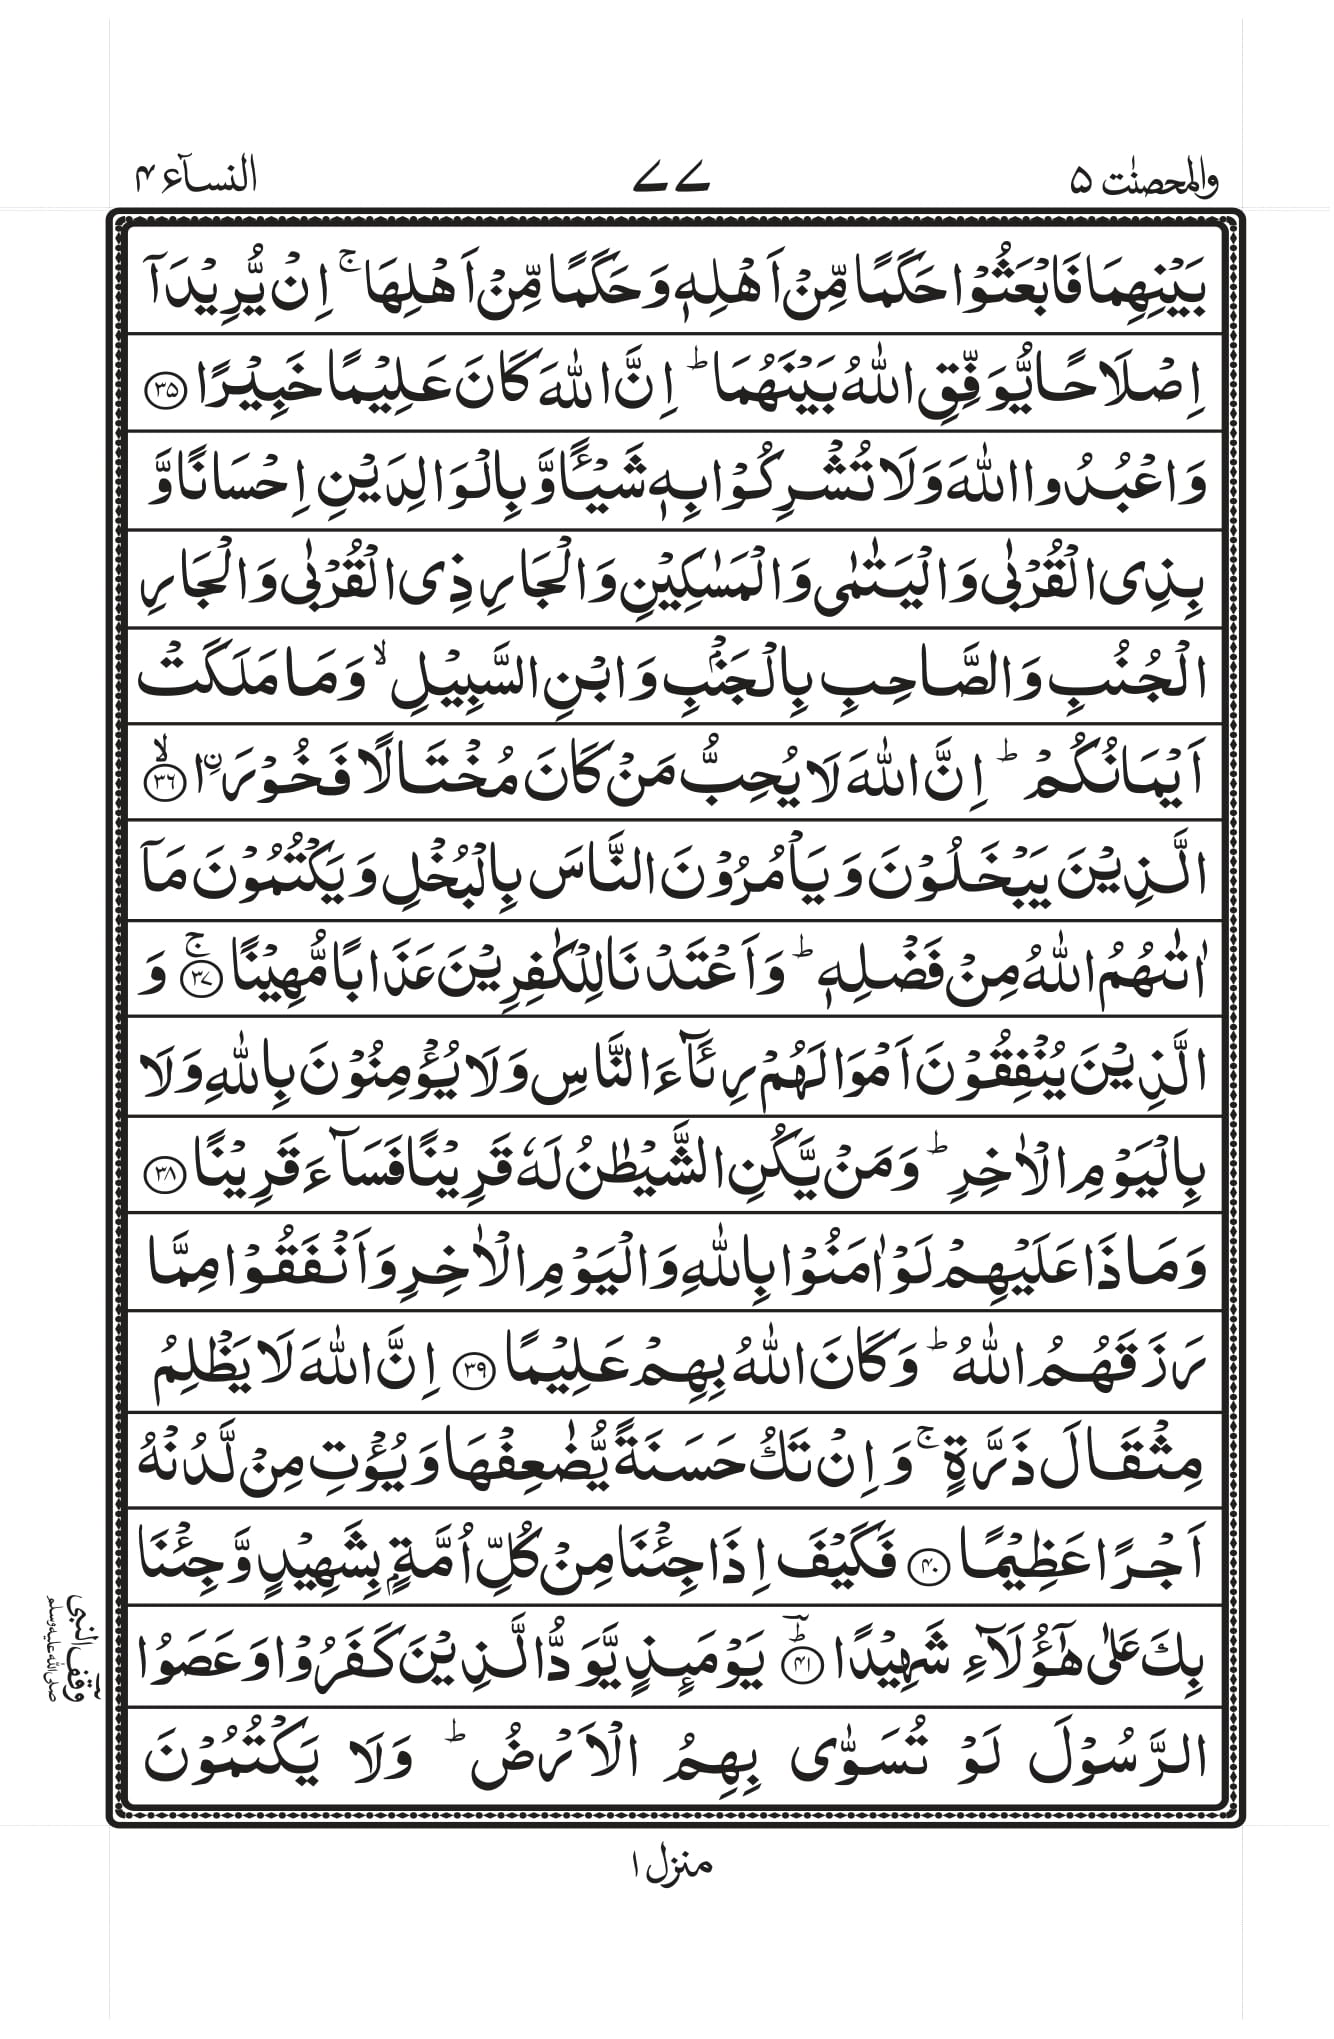 والمحصنٰت ۵
۷۷
النسآء ۴
بَيۡنِهِمَا فَابۡعَثُوۡا حَكَمًا مِّنۡ اَهۡلِهٖ وَحَكَمًا مِّنۡ اَهۡلِهَا ۚ اِنۡ يُّرِيۡدَاۤ
اِصۡلَاحًا يُّوَفِّقِ اللّٰهُ بَيۡنَهُمَا ؕ اِنَّ اللّٰهَ كَانَ عَلِيۡمًا خَبِيۡرًا ﴿۳۵﴾
وَاعۡبُدُوا اللّٰهَ وَلَا تُشۡرِكُوۡا بِهٖ شَيۡـًٔا وَّبِالۡوَالِدَيۡنِ اِحۡسَانًا وَّ
بِذِى الۡقُرۡبٰى وَالۡيَتٰمٰى وَالۡمَسٰكِيۡنِ وَالۡجَارِ ذِى الۡقُرۡبٰى وَالۡجَارِ
الۡجُنُبِ وَالصَّاحِبِ بِالۡجَنۡۢبِ وَابۡنِ السَّبِيۡلِ ۙ وَمَا مَلَكَتۡ
اَيۡمَانُكُمۡ ؕ اِنَّ اللّٰهَ لَا يُحِبُّ مَنۡ كَانَ مُخۡتَالًا فَخُوۡرَ ۨا ۙ﴿۳۶﴾
الَّذِيۡنَ يَبۡخَلُوۡنَ وَيَاۡمُرُوۡنَ النَّاسَ بِالۡبُخۡلِ وَيَكۡتُمُوۡنَ مَاۤ
اٰتٰٮهُمُ اللّٰهُ مِنۡ فَضۡلِهٖ ؕ وَاَعۡتَدۡنَا لِلۡكٰفِرِيۡنَ عَذَابًا مُّهِيۡنًا ۚ﴿۳۷﴾ وَ
الَّذِيۡنَ يُنۡفِقُوۡنَ اَمۡوَالَهُمۡ رِئَآءَ النَّاسِ وَلَا يُؤۡمِنُوۡنَ بِاللّٰهِ وَلَا
بِالۡيَوۡمِ الۡاٰخِرِ ؕ وَمَنۡ يَّكُنِ الشَّيۡطٰنُ لَهٗ قَرِيۡنًا فَسَآءَ قَرِيۡنًا ﴿۳۸﴾
وَمَاذَا عَلَيۡهِمۡ لَوۡ اٰمَنُوۡا بِاللّٰهِ وَالۡيَوۡمِ الۡاٰخِرِ وَاَنۡفَقُوۡا مِمَّا
رَزَقَهُمُ اللّٰهُ ؕ وَكَانَ اللّٰهُ بِهِمۡ عَلِيۡمًا ﴿۳۹﴾ اِنَّ اللّٰهَ لَا يَظۡلِمُ
مِثۡقَالَ ذَرَّةٍ ۚ وَاِنۡ تَكُ حَسَنَةً يُّضٰعِفۡهَا وَيُؤۡتِ مِنۡ لَّدُنۡهُ
اَجۡرًا عَظِيۡمًا ﴿۴۰﴾ فَكَيۡفَ اِذَا جِئۡنَا مِنۡ كُلِّ اُمَّةٍۭ بِشَهِيۡدٍ وَّجِئۡنَا
بِكَ عَلٰى هٰٓؤُلَآءِ شَهِيۡدًا ؕ﴿۴۱﴾ يَوۡمَئِذٍ يَّوَدُّ الَّذِيۡنَ كَفَرُوۡا وَعَصَوُا
الرَّسُوۡلَ لَوۡ تُسَوّٰى بِهِمُ الۡاَرۡضُ ؕ وَلَا يَكۡتُمُوۡنَ
وقف النبی
صلی اللہ علیہ وسلم
منزل ۱